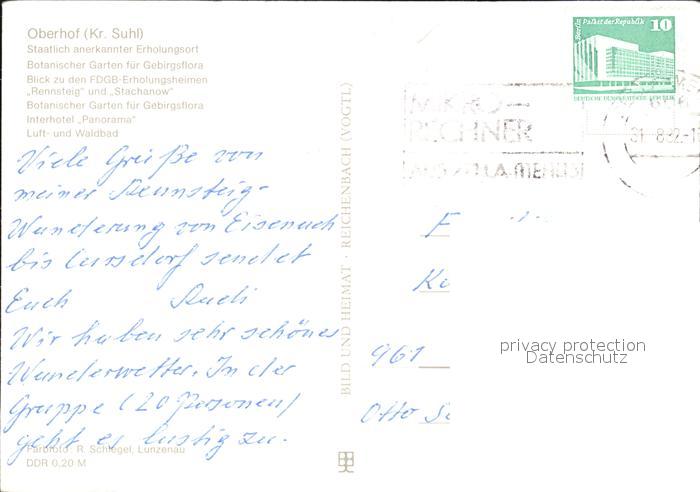 Oberhof (Kr. Suhl)
Staatlich anerkannter Erholungsort
Botanischer Garten für Gebirgsflora
Blick zu den FDGB-Erholungsheimen
„Rennsteig" und „Stachanow"
Botanischer Garten für Gebirgsflora
Interhotel „Panorama"
Luft- und Waldbad
Viele Grüße von
meiner Rennsteig-
Wanderung von Eisenach
bis Cursdorf sendet
Euch Rudi
Wir haben sehr schönes
Wanderwetter. In der
Gruppe (20 Personen)
geht es lustig zu.
Farbfoto: R. Schlegel, Lunzenau
DDR 0,20 M
BILD UND HEIMAT · REICHENBACH (VOGTL)
Berlin Palast der Republik 10
DEUTSCHE DEMOKRATISCHE REPUBLIK
MIKRO-
RECHNER
31.8.82.-1
F
Kü
961
Otto Sc
privacy protection
Datenschutz